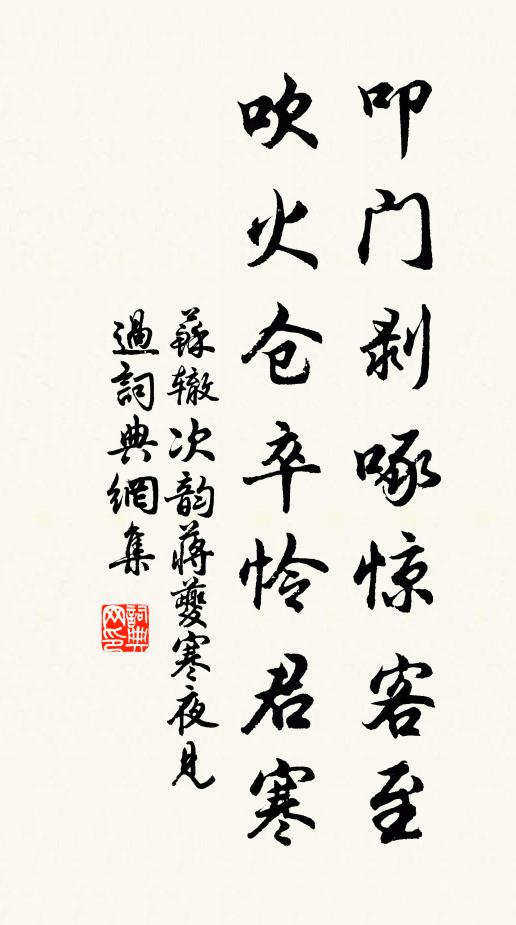 叩门剥啄惊客至
吹火仓卒怜君寒
蘇辙次韵蔣夔寒夜見
過詞典網集
詞典网印